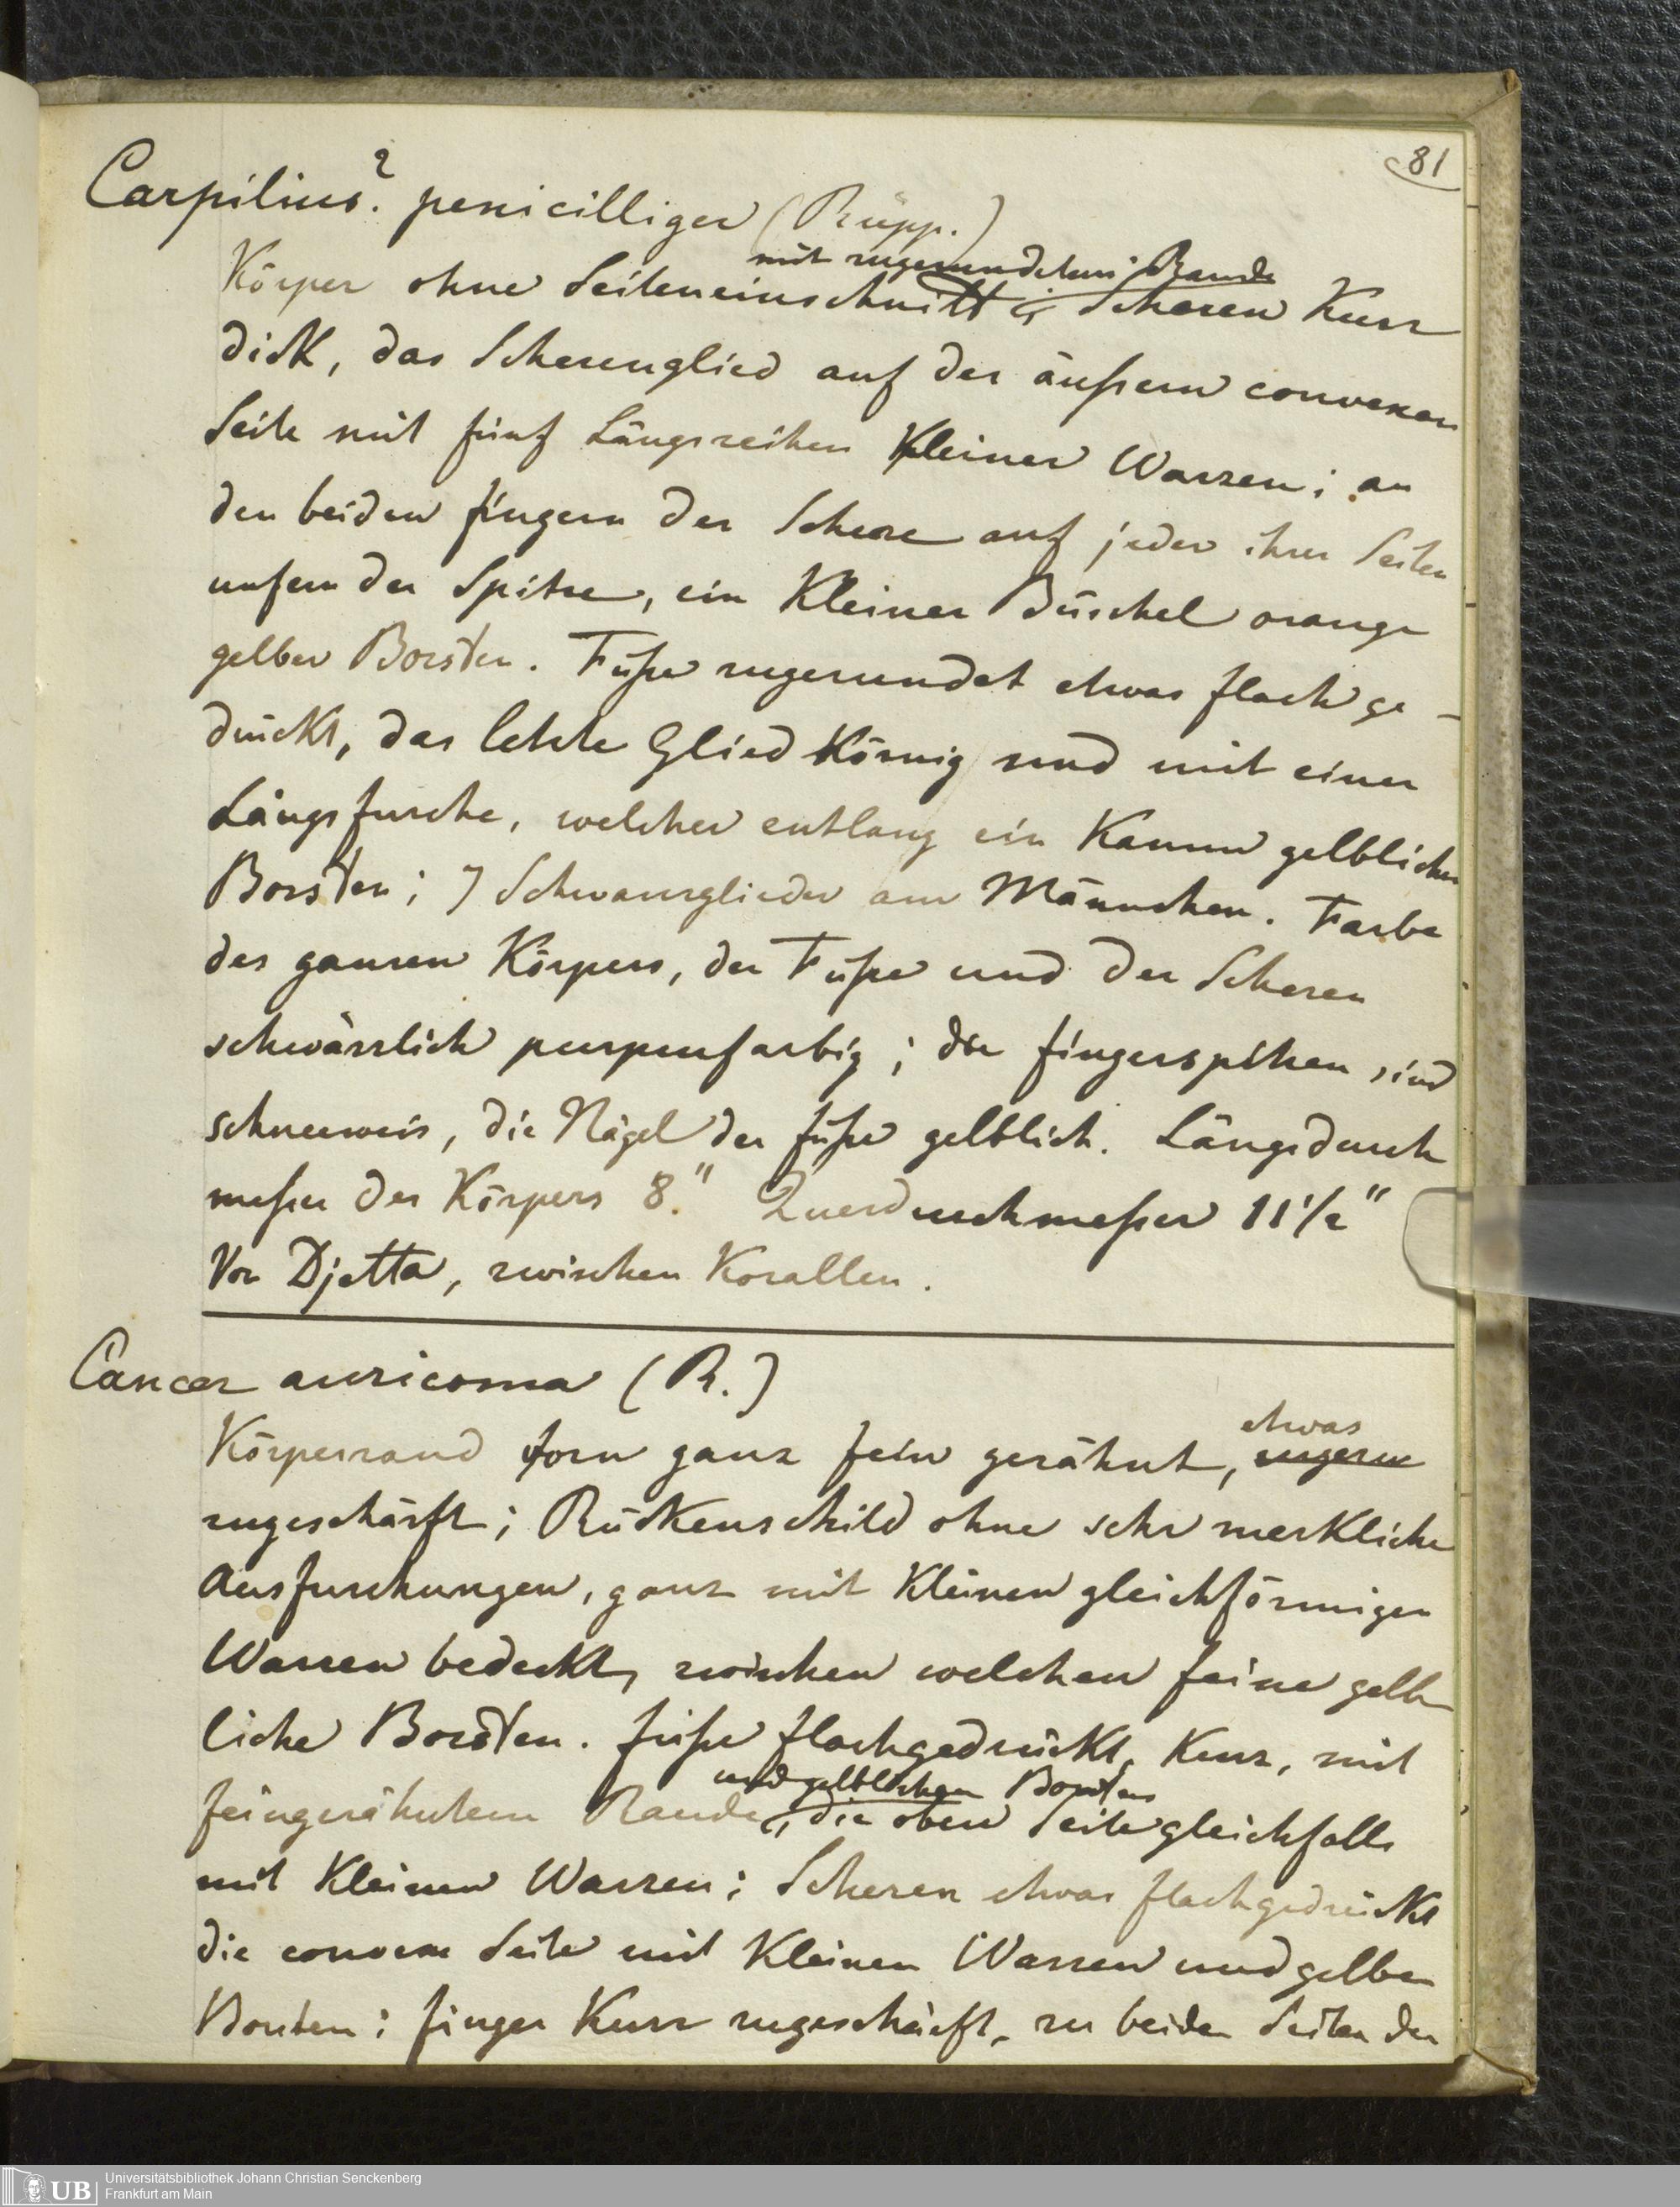 81
Carpilius? penicilliger (Rüpp.)
mit zugerundetem Rande
Körper ohne Seiteneinschnitt; Scheren kurz
dick, das Scherenglied auf der äußern convexen
Seite mit fünf Längsreihen kleiner Warzen; an
den beiden fingern der Schere auf jeder ihrer Seiten
unfern der Spitze, ein kleiner Büschel orange
gelber Borsten. Füße zugerundet etwas flach ge-
drückt, das letzte Glied körnig und mit einer
Längsfurche, welcher entlang ein Kamm gelblicher
Borsten; 7 Schwanzglieder am Männchen. Farbe
des ganzen Körpers, der Füße und der Scheren
schwärzlich purpurfarbig; die fingerspitzen sind
schneeweis, die Nägel der füße gelblich. Längsdurch
meßer des Körpers 8." Querdurchmeßer 11 1/2"
Vor Djetta, zwischen Korallen.
Cancer auricoma (R.)
etwas
Körperrand forn ganz fein gezähnt, zugerun
zugeschärft; Rückenschild ohne sehr merkliche
Ausfurchungen, ganz mit kleinen gleichförmigen
Warzen bedeckt, zwischen welchen feine gelb
liche Borsten. füße flachgedrückt, kurz, mit
und gelblichen Borsten
feingezähntem Rande, die obere Seite gleichfalls
mit kleinen Warzen; Scheren etwas flachgedrückt
die convexe Seite mit kleinen Warzen und gelben
Borsten; finger kurz zugeschärft, zu beiden Seiten der
Universitätsbibliothek Johann Christian Senckenberg
UB Frankfurt am Main